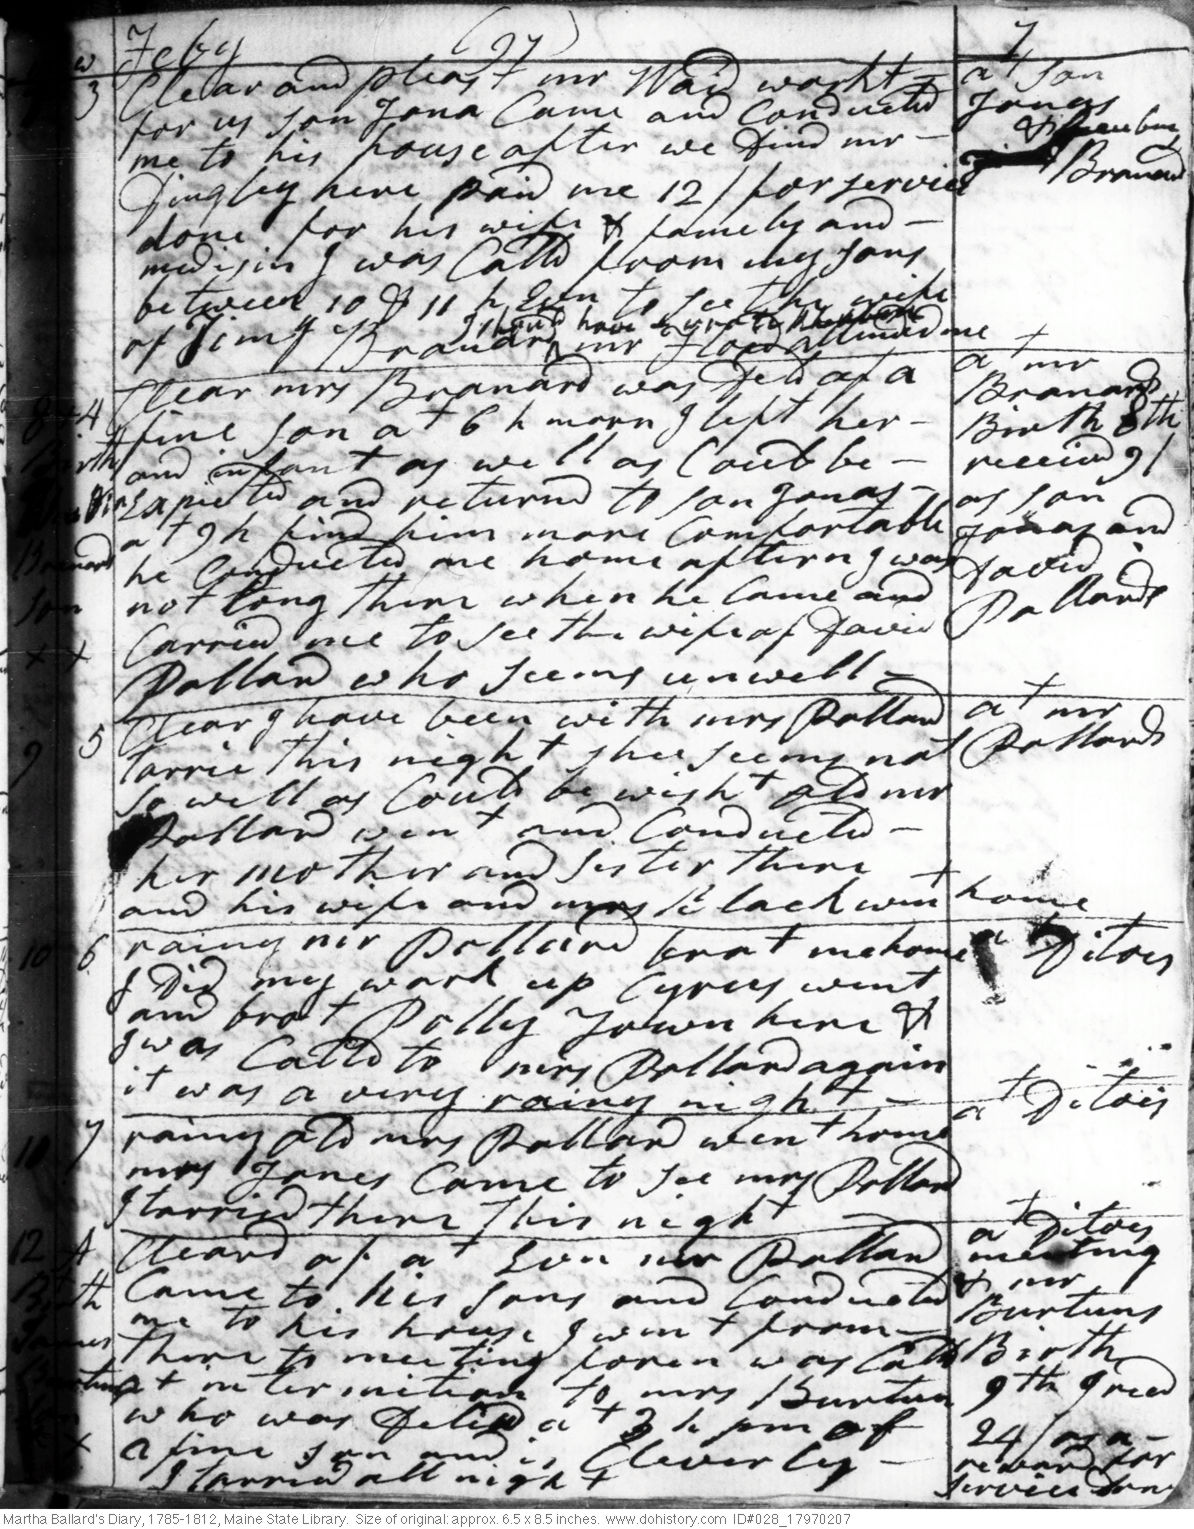 Feby (97) 7
3 Clear and pleast mr Waid workt
for us son Jona Came and Conducted
me to his house after we dind mr
Dingley here paid me 12/ for servis
done for his wife & famely and
medisin I was Calld from my sons
between 10 & 11 h Evn to see the wife
of Timy Branard mr
I should have attended me
at son
Jonas
&
Branard
8 4 Clear mrs Branard was Deld of a
fine son at 6 h morn I left her
and infant as well as Could be
Expected and returnd to son Jonas
at 9 h find him more Comfortable
he Conducted me home aftern I was
not long there when he Came and
Carried me to see the wife of David
Pollard who seems unwell
Birth
Branard
son
x x
at mr
Branards
Birth 8th
receivd 9/
at son
Jonas and
David
Pollards
9 5 Clear I have been with mrs Pollard
tarrie this night shee seems not
so well as Could be wisht old mr
Pollard went and Conducted
her mother and sister there
and his wife and mrs Black went home
at mr
Pollards
10 6 rainy mr Pollard brot me home
I Did my work up Cyrus went
and brot Polly Town here &
I was Calld to mrs Pollard again
it was a very rainy night
at Ditoes
7 rainy old mrs Pollard went home
mrs Jones Came to see mrs Pollard
I tarried there this night
at Ditoes
12 A Cleard of at Evn mr Pollard
Came to his sons and Conducted
me to his house I went from
there to meeting foren was Calld
at intermition to mrs Burtun
who was Delivd at 3 h pm of
a fine son and is Cleverly
I tarried all night
Birth
James
Burtuns
son
x
at Ditoes
meeting
& mr
Burtuns
Birth
9th I recd
24/ as a
reward for
service done
Martha Ballard's Diary, 1785-1812, Maine State Library. Size of original: approx. 6.5 x 8.5 inches. www.dohistory.com ID#028_17970207